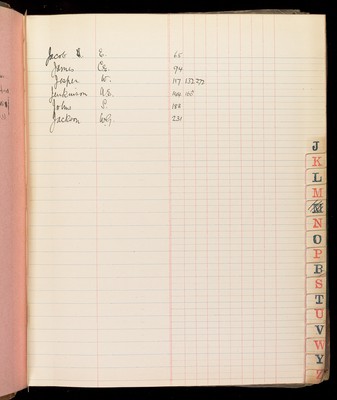 Jacob H. E. 65
James Ch. 94
Jesper W. 117 132 277
Jenkinson A.E. 144 160
Johns L. 188
Jackson W.G. 231
J
K
L
M
M
N
O
P
B
S
T
U
V
W
Y
Z